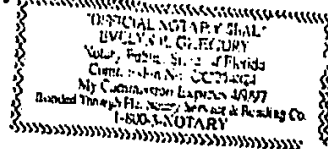 "OFFICIAL NOTARY SEAL"
EVELYN R. GREGORY
Notary Public, State of Florida
Commission No.
My Commission Expires 4/9/97
Bonded Through Fla. Notary Service & Bonding Co.
1-800-3-NOTARY